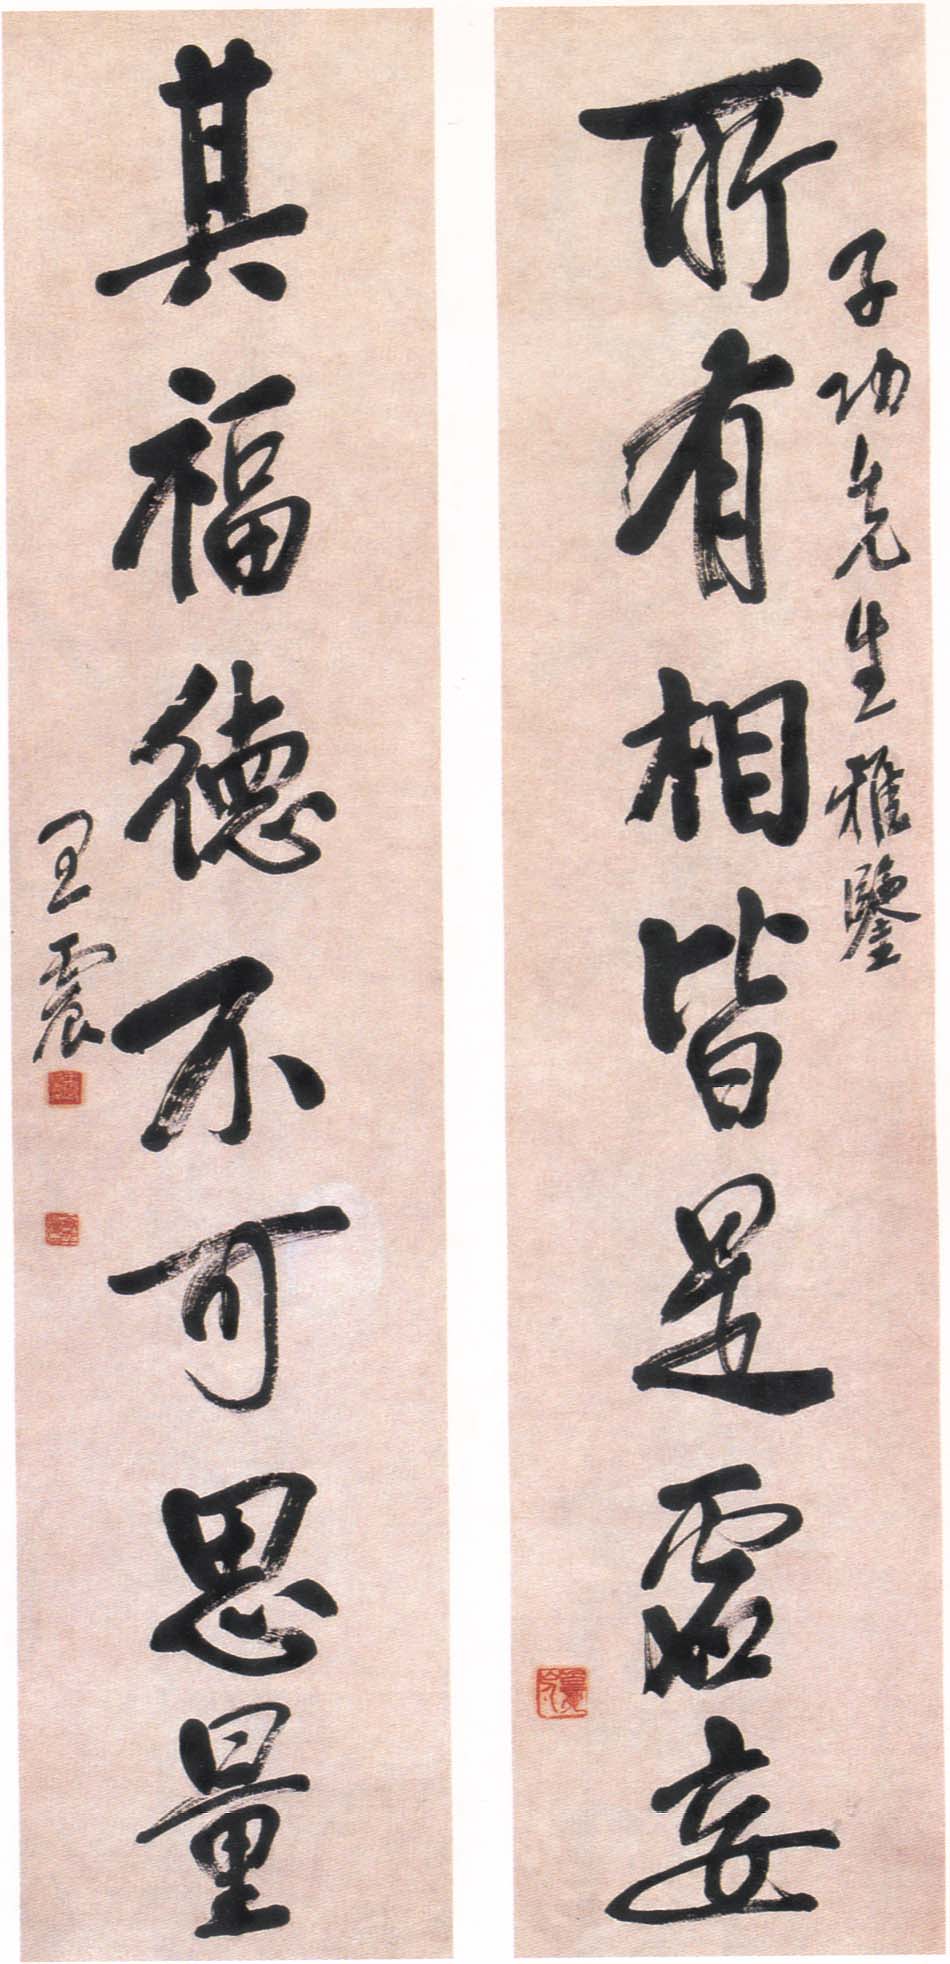 子功先生雅鑒
所有相皆是虛妄
其福德不可思量
王震